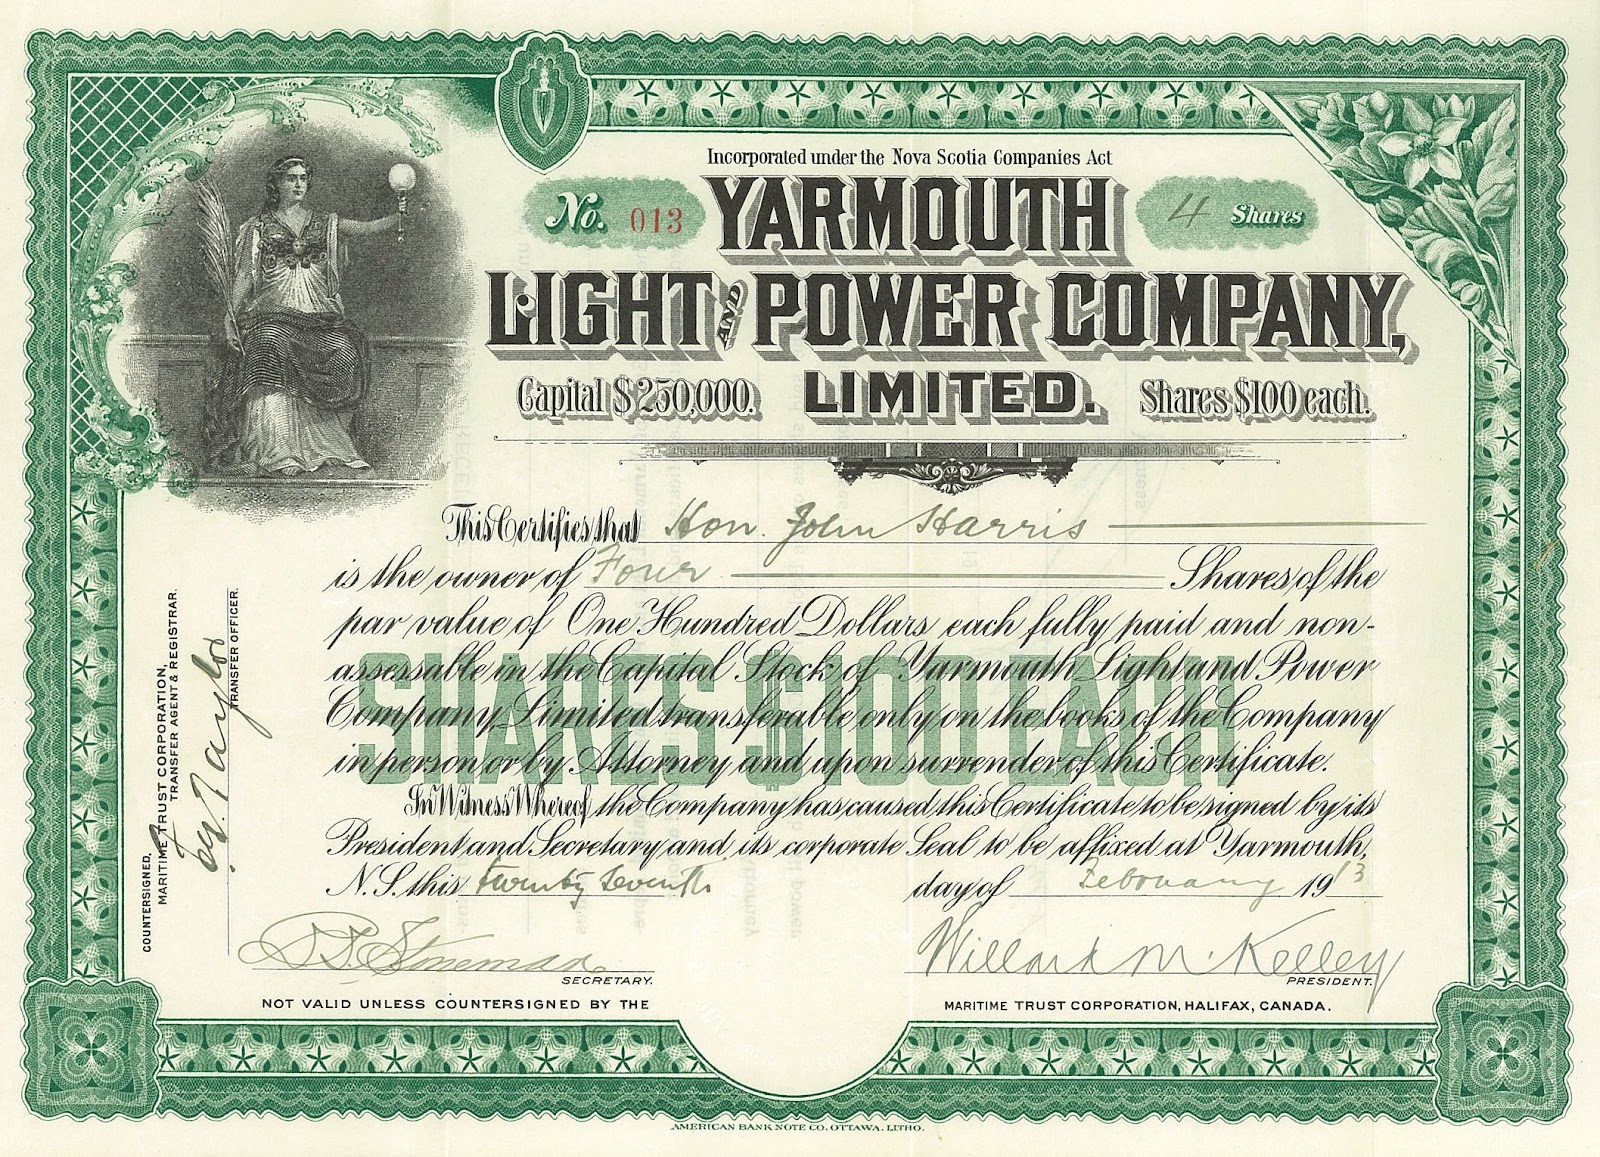 Incorporated under the Nova Scotia Companies Act
No. 013 YARMOUTH 4 Shares
LIGHT AND POWER COMPANY,
Capital $250,000. LIMITED. Shares $100 each.
This Certifies that Hon. John Harris
is the owner of Four Shares of the
par value of One Hundred Dollars each fully paid and non-
assessable in the Capital Stock of Yarmouth Light and Power
Company, Limited transferable only on the books of the Company
in person or by Attorney and upon surrender of this Certificate.
SHARES $100 EACH
In Witness Whereof the Company has caused this Certificate to be signed by its
President and Secretary and its corporate Seal to be affixed at Yarmouth,
N.S. this twenty seventh day of February 1913
Willard M. Kelley
SECRETARY. PRESIDENT.
NOT VALID UNLESS COUNTERSIGNED BY THE MARITIME TRUST CORPORATION, HALIFAX, CANADA.
COUNTERSIGNED,
MARITIME TRUST CORPORATION,
TRANSFER AGENT & REGISTRAR.
TRANSFER OFFICER.
AMERICAN BANK NOTE CO. OTTAWA. LITHO.